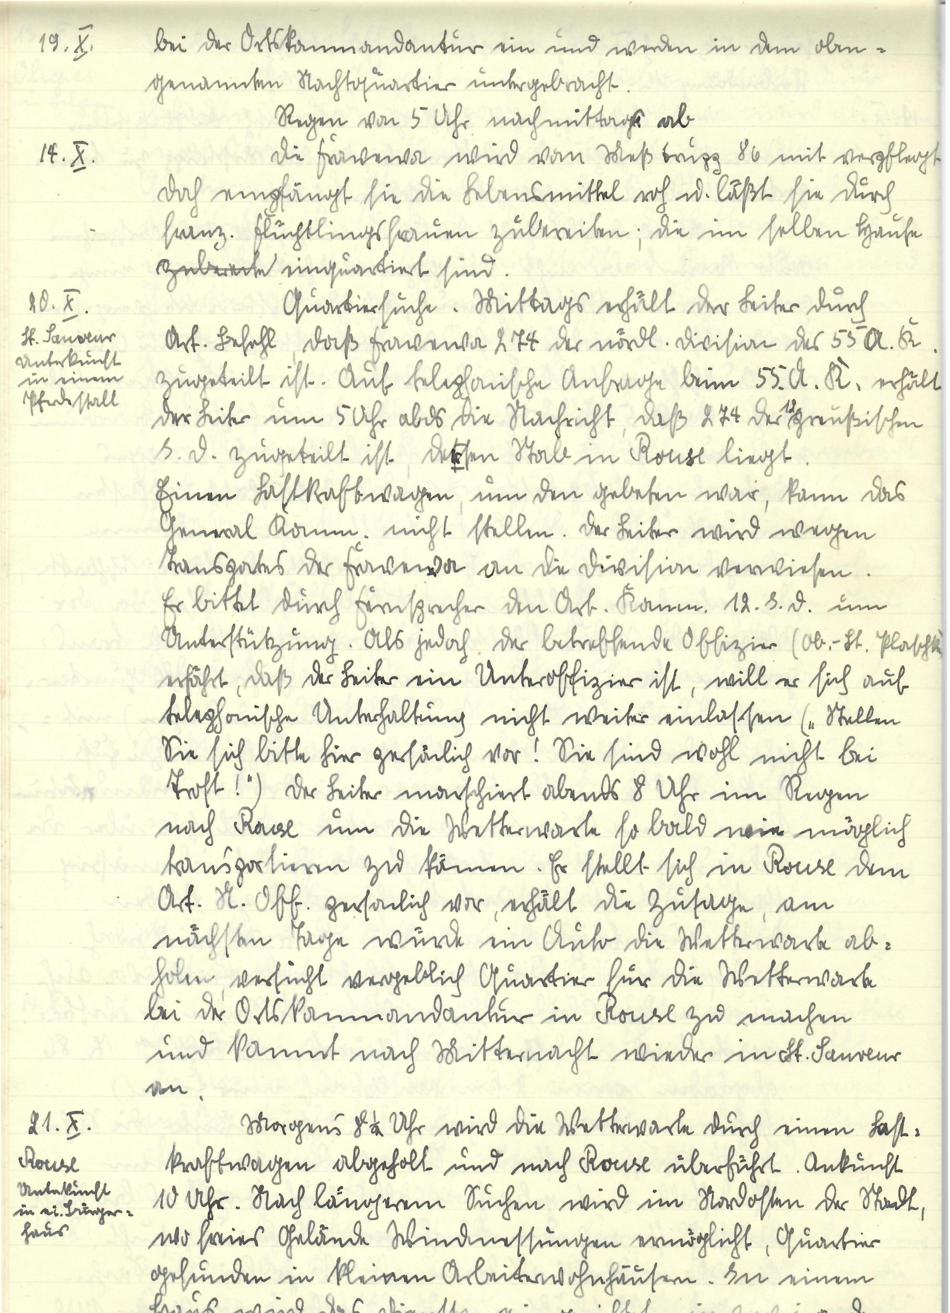 19. X. bei der Ortskommandantur ein und werden in dem oben=
genannten Nachtquartier untergebracht.
Regen von 5 Uhr nachmittags ab
14. X. Die Frawewa wird vom Meß 86 mit verpflegt
doch empfängt sie die Lebensmittel roh u. läßt sie durch
franz. Flüchtlingsfrauen zubereiten; die im selben Hause
einquartiert sind.
20. X. Quartiersuche. Mittags erhält der Leiter durch
St. Sauveur
Unterkunft
in einem
Pferdestall
Art. Befehl, daß Frawewa 274 der nördl. Division des 55 A. K.
zugeteilt ist. Auf telephonische Anfrage beim 55. A. K. erhält
der Leiter um 5 Uhr abds die Nachricht, daß 274 der 12 preußischen
I. D. zugeteilt ist, dessen Stab in Roust liegt.
Einen Lastkraftwagen, um den gebeten war, kann das
General Komm. nicht stellen. Der Leiter wird wegen
Transportes der Frawewa an die Division verwiesen.
Er bittet durch Fernsprecher den Art. Komm. 12. I. D. um
Unterstützung. Als jedoch der betreffende Offizier (Ob.-Lt.
erfährt, daß der Leiter ein Unteroffizier ist, will er sich auf
telephonische Unterhaltung nicht weiter einlassen („Stellen
Sie sich bitte hier persönlich vor! Sie sind wohl nicht bei
Trost!") Der Leiter marschiert abends 8 Uhr im Regen
nach um die Wetterwarte so bald wie möglich
transportieren zu können. Er stellt sich in dem
Art. N. Off. persönlich vor, erhält die Zusage, am
nächsten Tage würde ein Auto die Wetterwarte ab=
holen, versucht vergeblich Quartier für die Wetterwarte
bei der Ortskommandantur in zu machen
und kommt nach Mitternacht wieder in St. Sauveur
an.
21. X. Morgens 8½ Uhr wird die Wetterwarte durch einen Last=
Unterkunft
in ei. Bürger=
haus
kraftwagen abgeholt und nach überführt. Ankunft
10 Uhr. Nach längerem Suchen wird im Nordosten der Stadt,
wo freies Gelände Windmessungen ermöglicht, Quartier
gefunden in kleinen Arbeiterwohnhäusen. In einem